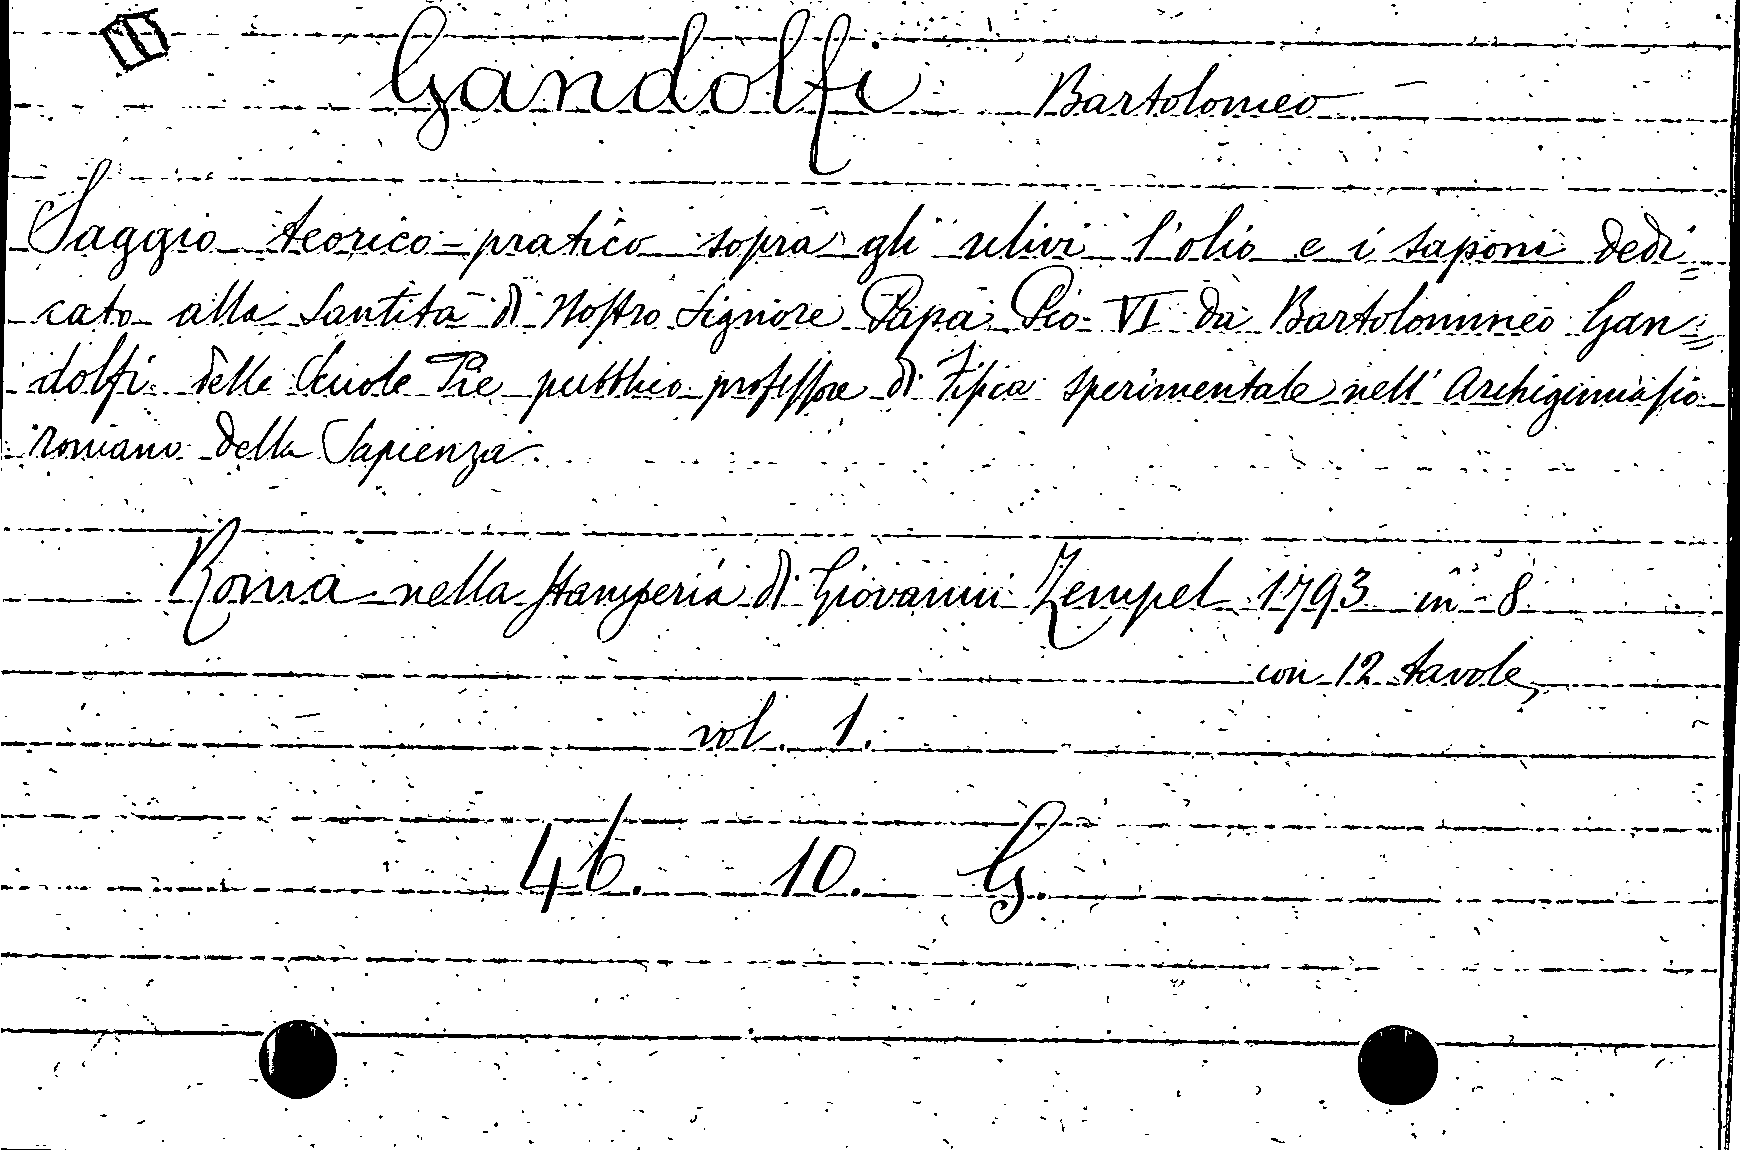 Gandolfi Bartolomeo
Saggio teorico-pratico sopra gli ulivi l'olio e i saponi dedi=
cato alla Santità di Nostro Signore Papa Pio VI da Bartolommeo Gan=
dolfi delle Scuole Pie pubblico professore di Fisica sperimentale nell' Archiginnasio
romano della Sapienza.
Roma nella Stamperia di Giovanni Zempel 1793 in-8
con 12 tavole,
vol. 1.
46. 10. G.